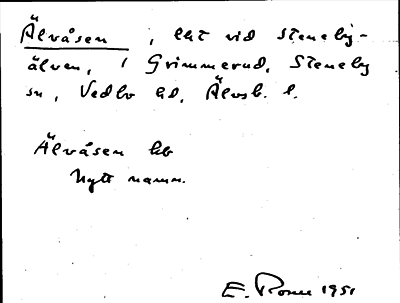 Älvåsen, lht vid Steneby-
älven, i Grimmerud, Steneby
sn, Vedbo hd, Älvsb. l.
Älvåsen hb
Nytt namn.
E. Rosen 1951